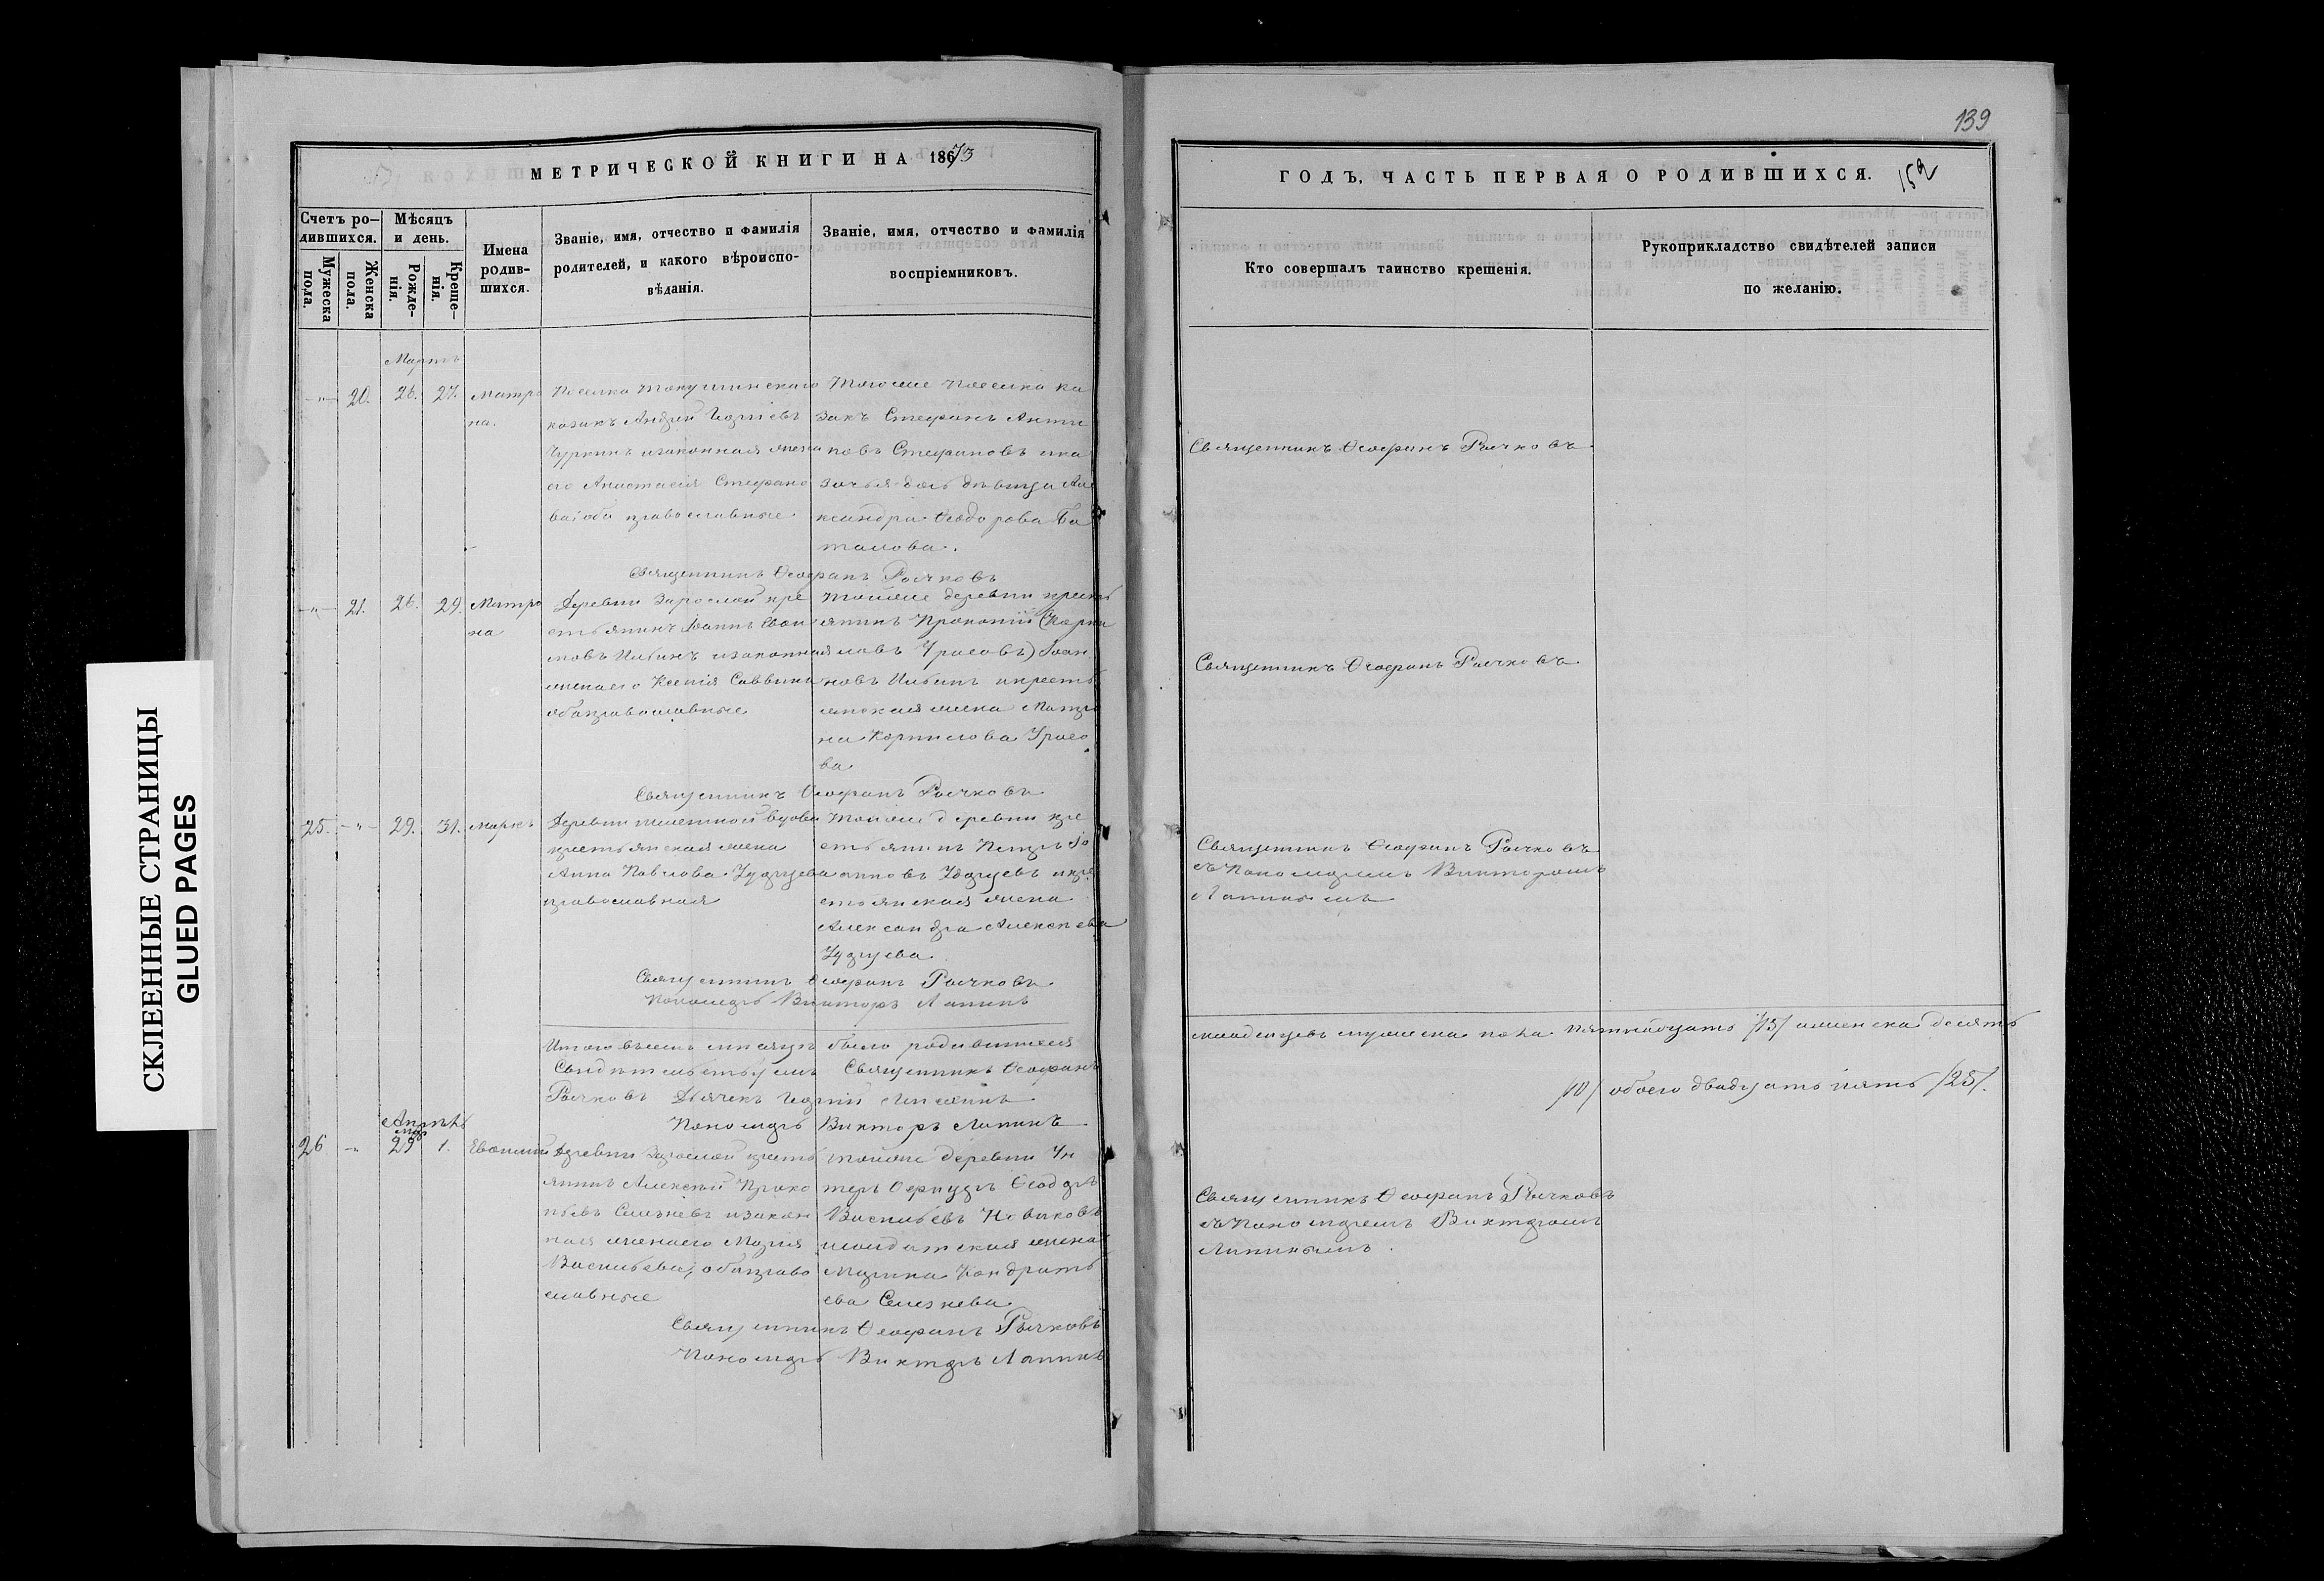 139
МЕТРИЧЕСКОЙ КНИГИ НА 1873
ГОДЪ, ЧАСТЬ ПЕРВАЯ О РОДИВШИХСЯ.
152
Счетъ ро-
дившихся.
Мужеска пола.
Женска пола.
Мѣсяцъ
и день.
Рожде-
нія.
Креще-
нія.
Имена
родив-
шихся.
Званіе, имя, отчество и фамилія
родителей, и какого вѣроиспо-
вѣданія.
Званіе, имя, отчество и фамилія
воспріемниковъ.
Кто совершалъ таинство крещенія.
Рукоприкладство свидѣтелей записи
по желанію.
Мартъ
-"- 20. 26. 27. Матро
на.
Поселка Токушинскаго
казакъ Андрей
Чуркинъ и законная жена
его Анастасія Стефано
ва; оба православные
Тогоже поселка ка
закъ Стефанъ Анти
повъ Стефановъ и ка
зачья дочь дѣвица Але
ксандра Ѳеодорова Ба
талова.
Священникъ Ѳеофанъ Рычковъ
Священникъ Ѳеофанъ Рычковъ
-"- 21. 26. 29. Матро
на
Деревни Зарослой кре
стьянинъ Іоаннъ
Ильинъ и законная
жена его Ксенія Саввина
оба православные
Тойже деревни кресть
янинъ Прокопій (Корни
ловъ) Іоан
новъ Ильинъ и кресть
янская жена Матро
на Корнилова
ва
Священникъ Ѳеофанъ Рычковъ
Священникъ Ѳеофанъ Рычковъ
25. -"- 29. 31. Маркъ
Деревни вдова
крестьянская жена
Анна Павлова
православная
Тойже деревни кре
стьянинъ Петръ Іо
анновъ и кре
стьянская жена
Александра Алексѣева
Священникъ Ѳеофанъ Рычковъ
Пономарь Викторъ Лапинъ
Священникъ Ѳеофанъ Рычковъ
съ Пономаремъ Викторомъ
Лапинымъ
Итого въ семъ мѣсяцѣ было родившихся
младенцевъ мужеска пола пятнадцать /15/ и женска десять
/10/ обоего двадцать пять /25/.
Свидѣтельствуемъ Священникъ Ѳеофанъ
Рычковъ Дьячекъ
Пономарь Викторъ Лапинъ
Апрѣль
26 -"- 29 1. Евѳимій
Деревни Зарослой кресть
янинъ Алексѣй Проко
пьевъ Селезневъ и закон
ная жена его Марія
Васильева, оба право
славные
Тойже деревни Ун
теръ Офицеръ Ѳеодоръ
Васильевъ Новиковъ
и солдатская жена
Марина Кондрать
ева Селезнева
Священникъ Ѳеофанъ Рычковъ
Пономарь Викторъ Лапинъ
Священникъ Ѳеофанъ Рычковъ
съ Пономаремъ Викторомъ
Лапинымъ.
СКЛЕЕННЫЕ СТРАНИЦЫ
GLUED PAGES